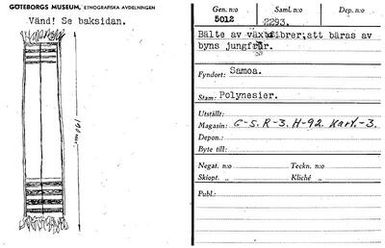 GÖTEBORGS MUSEUM, ETNOGRAFISKA AVDELNINGEN
Vänd! Se baksidan.
Gen. n:o
5012
Saml. n:o
2293.
Dep. n:o
Bälte av växtfibrer; att bäras av
byns jungfrur.
Fyndort: Samoa.
Stam: Polynesier.
Utställt:
Magasin: C-5. R-3. H-92. Kart.-3.
Depon.:
Byte till:
Negat. n:o
Teckn. n:o
Skiopt. "
Kliché "
Publ.: